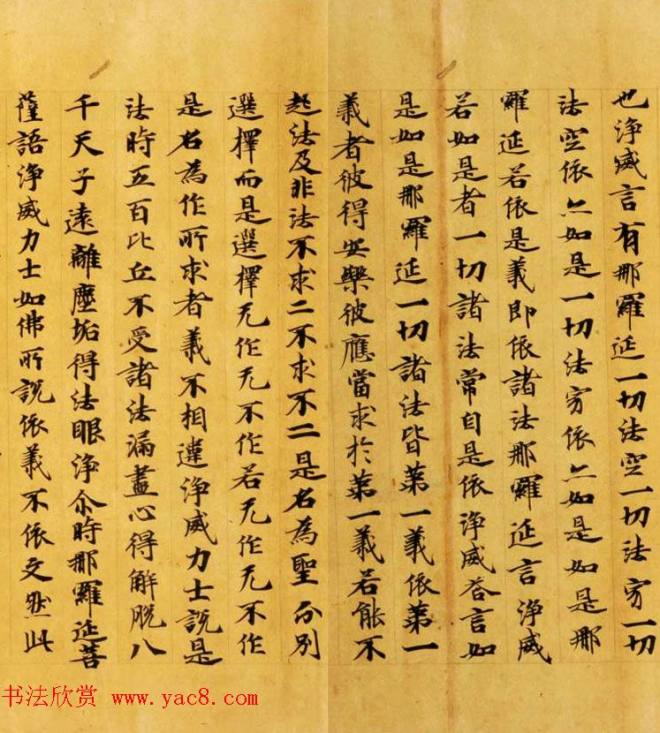 也淨威言有那羅延一切法空一切法穷一切
法空依亦如是一切法穷依亦如是如是那
羅延若依是義即依諸法那羅延言淨威
若如是者一切諸法常自是依淨威答言如
是如是那羅延一切諸法皆苐一義依苐一
義者彼得安樂彼應當求於苐一義若能不
起法及非法不求二不求不二是名為聖分別
選擇而是選擇无作无不作若无作无不作
是名為作所求者義不相違淨威力士說是
法時五百比丘不受諸法漏盡心得解脫八
千天子遠離塵垢得法眼淨尒時那羅延菩
薩語淨威力士如佛所說依義不依文然此
书法欣赏 www.yac8.com